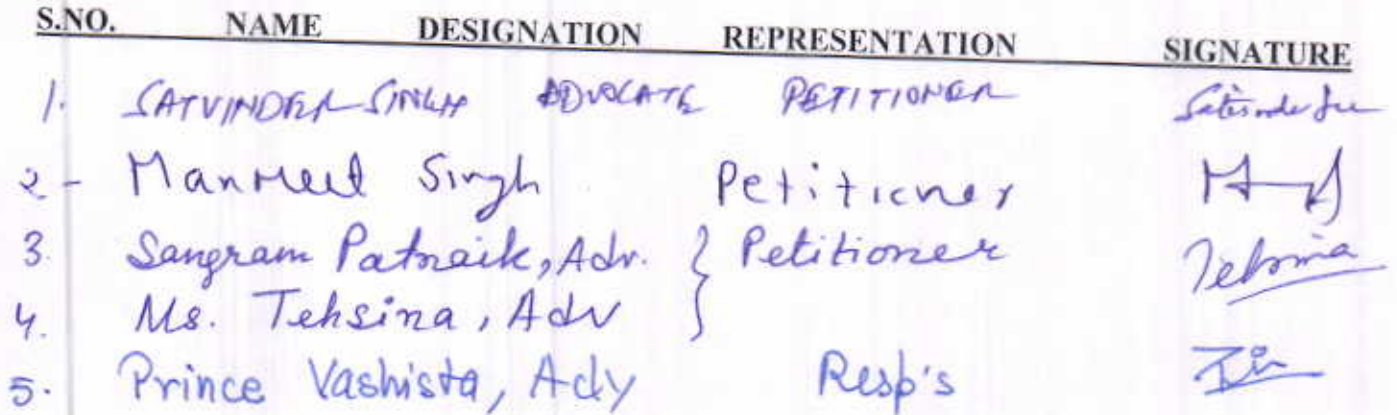 S.NO. NAME DESIGNATION REPRESENTATION SIGNATURE
1. SATVINDER SINGH ADVOCATE PETITIONER
2 - Manmeet Singh Petitioner
3. Sangram Patnaik, Adv. } Petitioner Tehsina
4. Ms. Tehsina, Adv
5. Prince Vashista, Adv Resp's